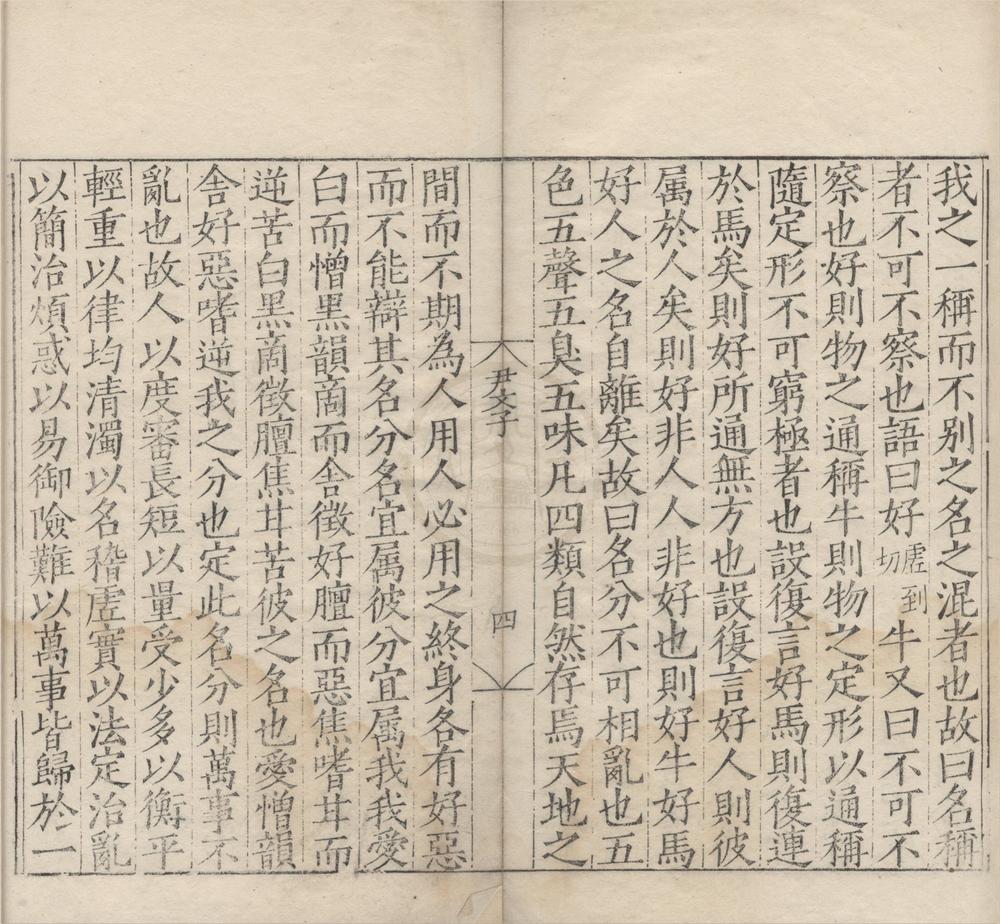 我之一稱而不别之名之混者也故曰名稱
者不可不察也語曰好虛到切牛又曰不可不
察也好則物之通稱牛則物之定形以通稱
隨定形不可窮極者也設復言好馬則復連
於馬矣則好所通無方也設復言好人則彼
属於人矣則好非人人非好也則好牛好馬
好人之名自離矣故曰名分不可相亂也五
色五聲五臭五味凡四類自然存焉天地之
尹文子
四
間而不期為人用人必用之終身各有好惡
而不能辯其名分名宜属彼分宜属我我愛
白而憎黑韻商而舍徵好膻而惡焦嗜甘而
逆苦白黑商徵膻焦甘苦彼之名也愛憎韻
舍好惡嗜逆我之分也定此名分則萬事不
亂也故人以度審長短以量受少多以衡平
輕重以律均清濁以名稽虛實以法定治亂
以簡治煩惑以易御險難以萬事皆歸於一